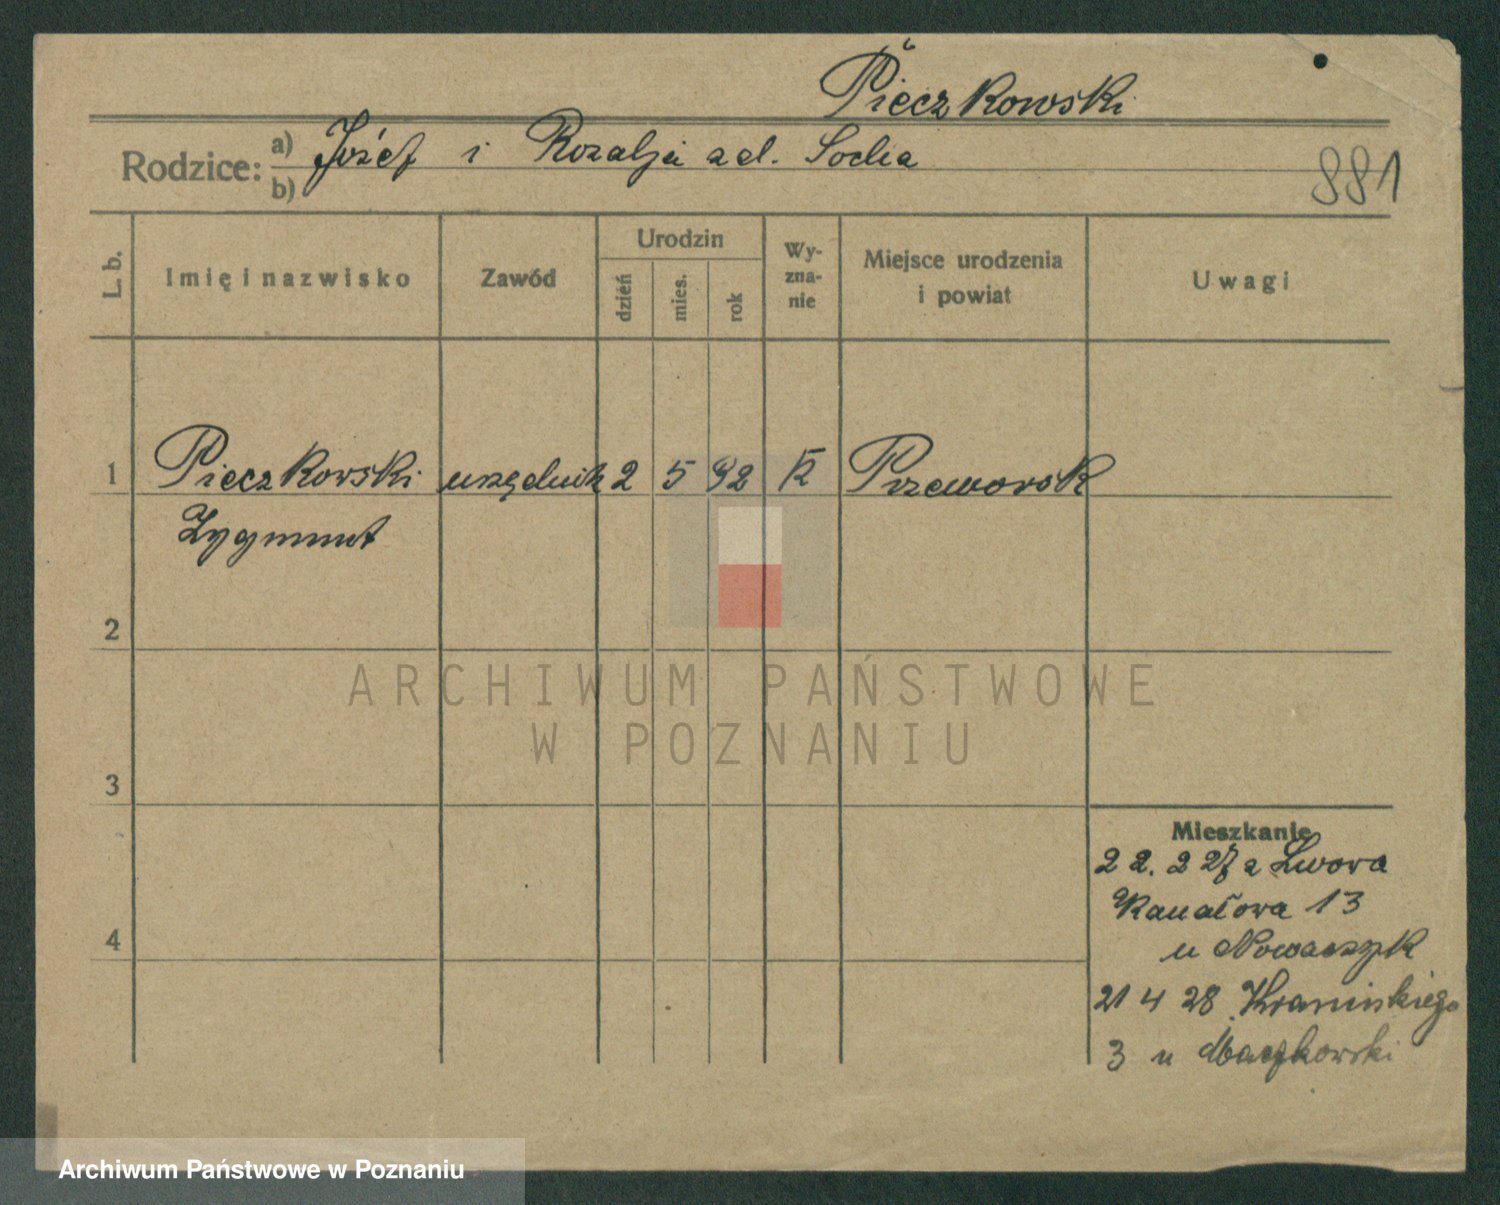 Pieczkowski
Rodzice: a) Józef i Rozalja zd. Socha
b)
881
L. b. Imię i nazwisko Zawód Urodzin dzień mies. rok Wy-zna-nie Miejsce urodzenia i powiat Uwagi
1 Pieczkowski urzędnik 2 5 92 K Przeworsk
Zygmunt
2
3
4
ARCHIWUM PAŃSTWOWE
W POZNANIU
Mieszkanie
22. 2 27 z Lwowa
Kanałowa 13
u Nowaczyk
21 4 28
3 u
Archiwum Państwowe w Poznaniu